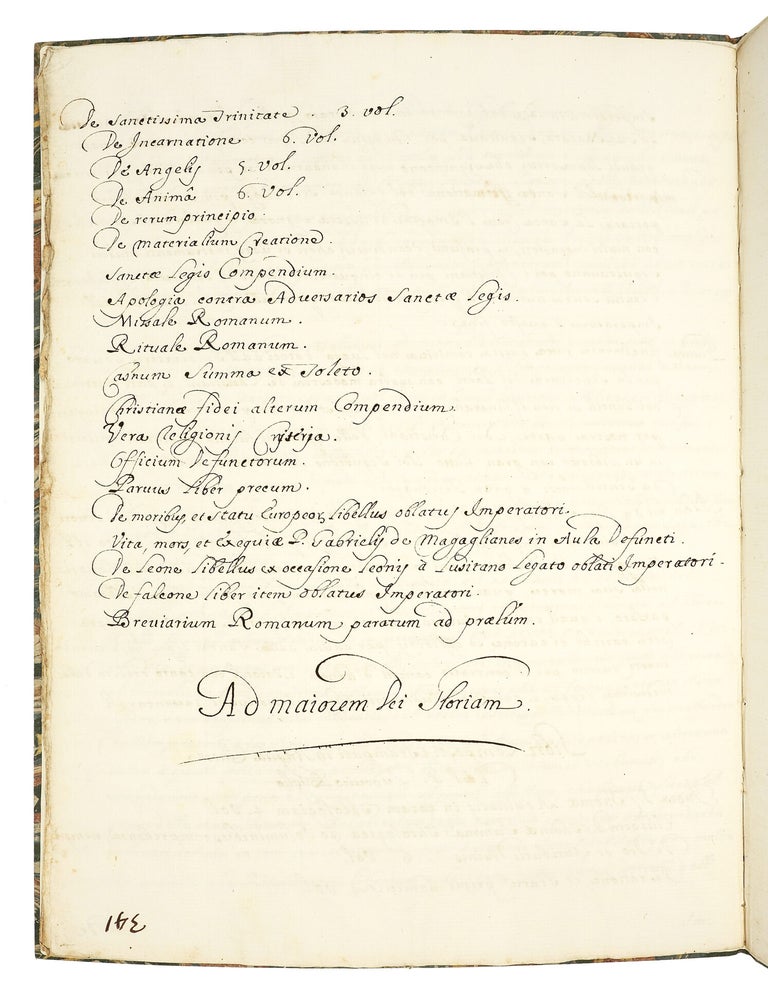 De Sanctissima Trinitate . 3. vol.
De Incarnatione 6. vol.
De Angelis 5. vol.
De Animâ 6. vol.
De rerum principio.
De materialium Creatione.
Sanctæ Legis Compendium.
Apologia contra Adversarios Sanctæ Legis.
Missale Romanum.
Rituale Romanum.
Casuum Summa ex Toleto.
Christianæ fidei alterum Compendium.
Vera Religionis
Officium Defunctorum.
Parvus Liber precum.
De moribus, et statu Europeor, Libellus oblatus Imperatori.
Vita, mors, et Exequiæ P. Gabrielis de Magaglianes in Aula Defuncti.
De Leone Libellus ex occasione Leonis à Lusitano Legato oblati Imperatori.
De falcone Liber item oblatus Imperatori.
Breviarium Romanum paratum ad prælum.
Ad maiorem Dei Gloriam.
341